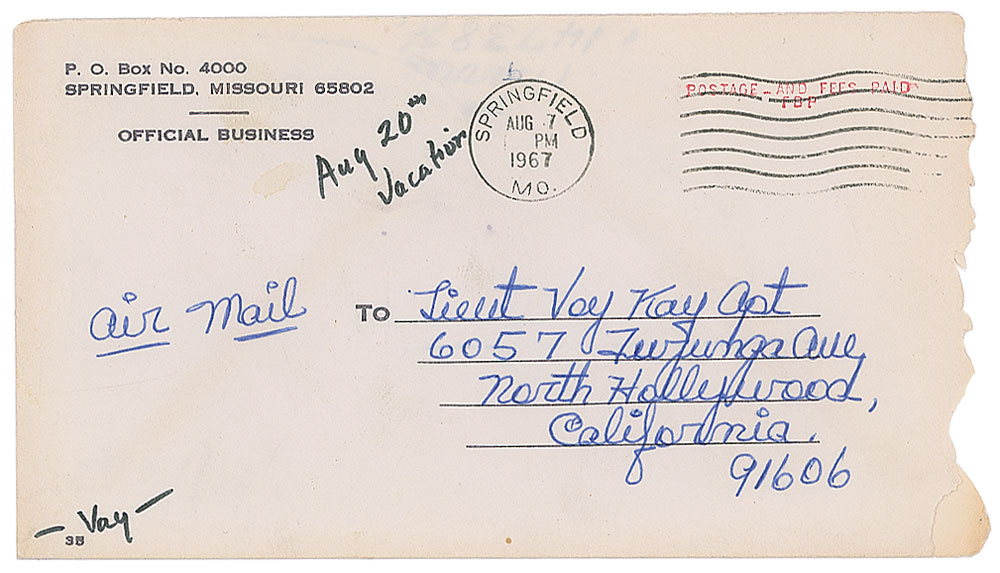 P. O. Box No. 4000
SPRINGFIELD, MISSOURI 65802
OFFICIAL BUSINESS
Aug 20
Vacation
SPRINGFIELD
AUG 7
PM
1967
MO.
POSTAGE AND FEES PAID
FBP
Air Mail
To Lieut Voy Kay Apt
6057 Tujunga Ave,
North Hollywood,
California.
91606
— Vay —
35